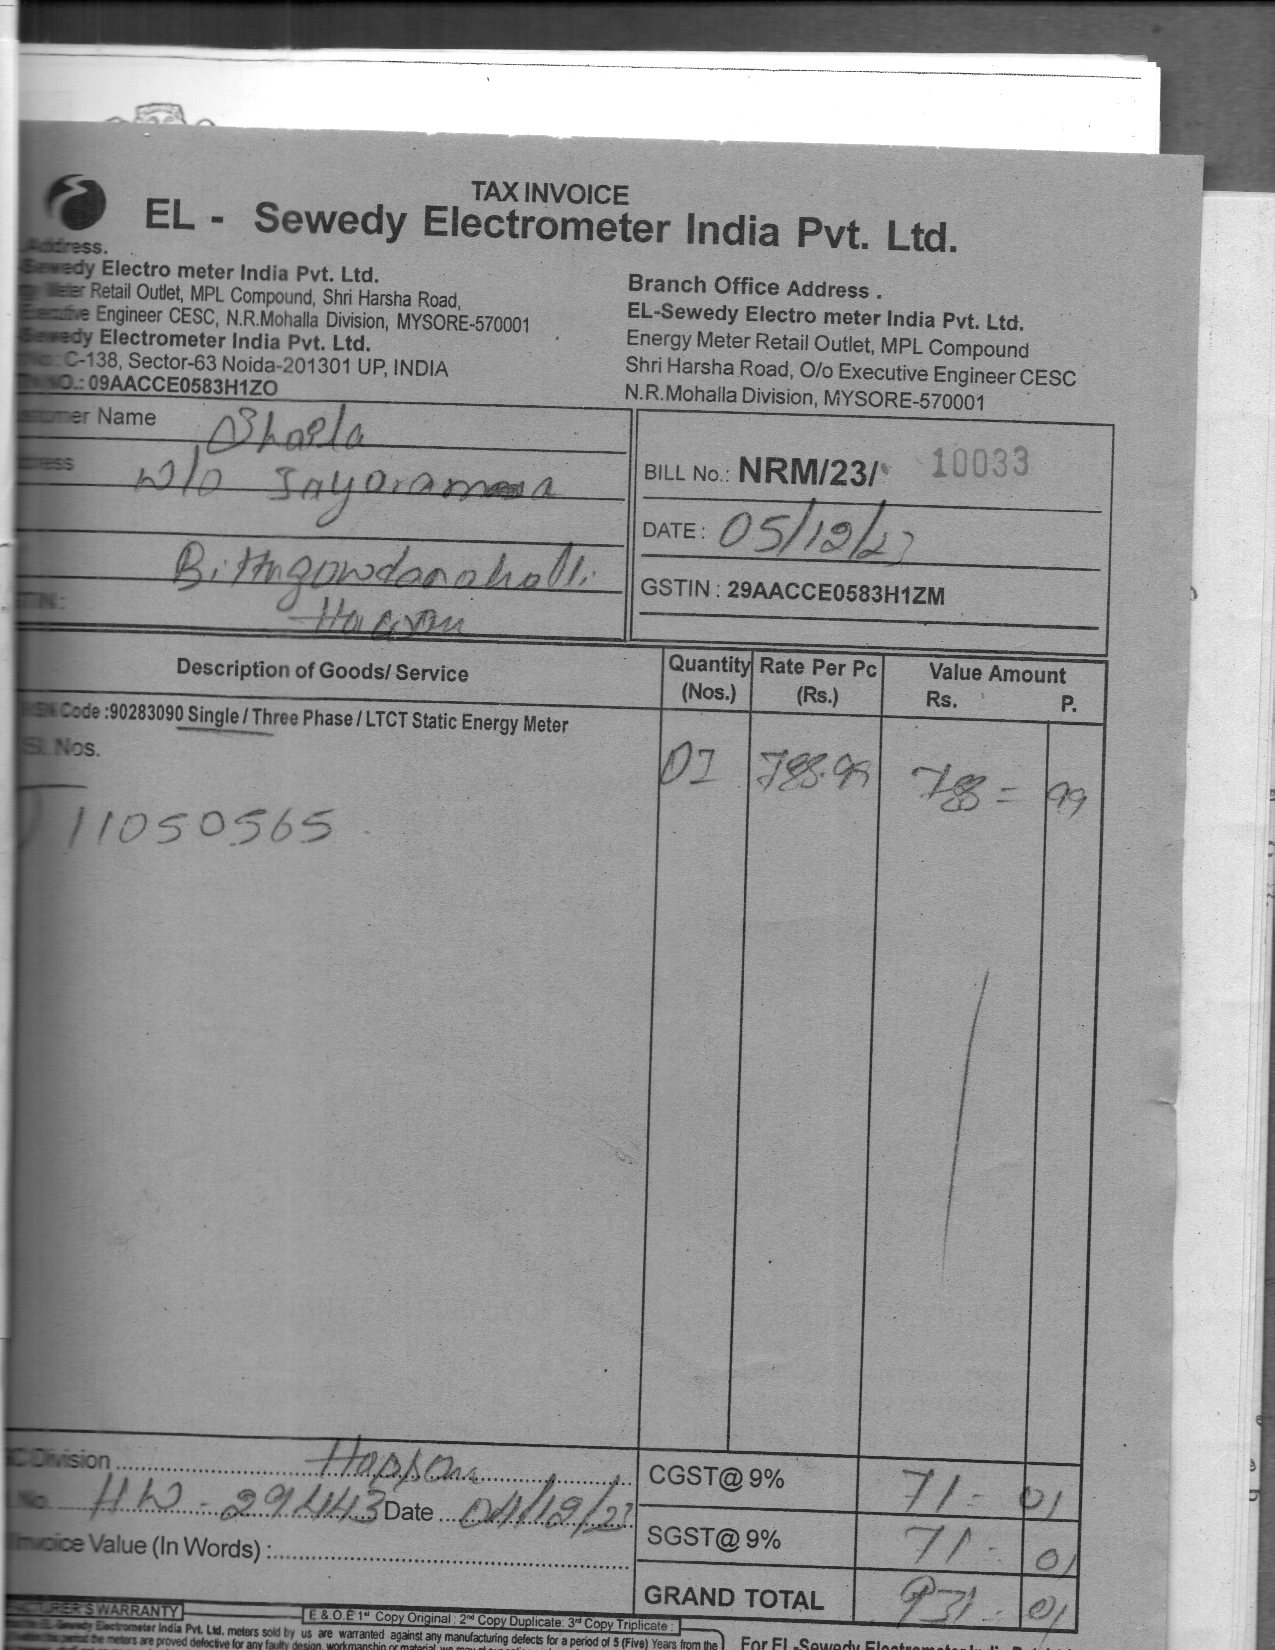 TAX INVOICE
EL - Sewedy Electrometer India Pvt. Ltd.
Address.
Sewedy Electro meter India Pvt. Ltd.
Meter Retail Outlet, MPL Compound, Shri Harsha Road,
Executive Engineer CESC, N.R.Mohalla Division, MYSORE-570001
Sewedy Electrometer India Pvt. Ltd.
C-138, Sector-63 Noida-201301 UP, INDIA
NO.: 09AACCE0583H1ZO
Branch Office Address .
EL-Sewedy Electro meter India Pvt. Ltd.
Energy Meter Retail Outlet, MPL Compound
Shri Harsha Road, O/o Executive Engineer CESC
N.R.Mohalla Division, MYSORE-570001
Customer Name
W/o
BILL No.: NRM/23/ 10033
DATE : 05/12/23
GSTIN : 29AACCE0583H1ZM
Description of Goods/ Service
Quantity (Nos.)
Rate Per Pc (Rs.)
Value Amount
Rs. P.
Code :90283090 Single / Three Phase / LTCT Static Energy Meter
Sl. Nos.
11050565
01 788.99 788 = 99
Division
HW - 29443 Date 04/12/23
Invoice Value (In Words) :
CGST@ 9% 71 - 01
SGST@ 9% 71 - 01
GRAND TOTAL 931 - 01
WARRANTY
E.& O.E 1st Copy Original : 2nd Copy Duplicate: 3rd Copy Triplicate :
Electrometer India Pvt. Ltd. meters sold by us are warranted against any manufacturing defects for a period of 5 (Five) Years from the
the meters are proved defective for any faulty design, workmanship or material
For EL -Sewedy